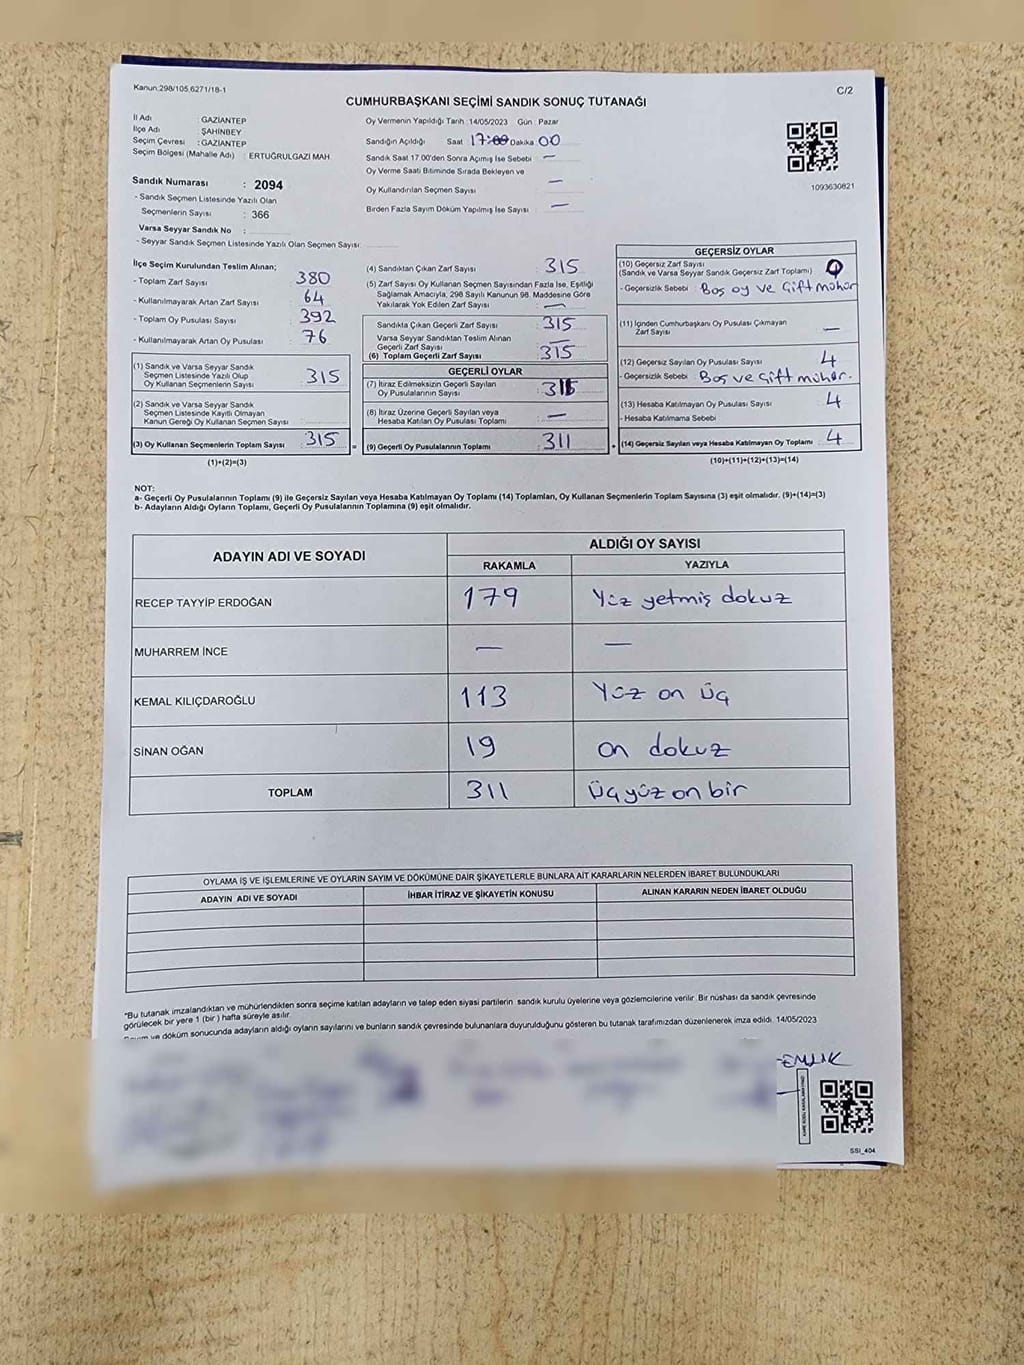 Kanun:298/105,6271/18-1
C/2
CUMHURBAŞKANI SEÇİMİ SANDIK SONUÇ TUTANAĞI
İl Adı : GAZİANTEP
İlçe Adı : ŞAHİNBEY
Seçim Çevresi : GAZİANTEP
Seçim Bölgesi (Mahalle Adı) : ERTUĞRULGAZİ MAH.
Sandık Numarası : 2094
- Sandık Seçmen Listesinde Yazılı Olan
Seçmenlerin Sayısı : 366
Varsa Seyyar Sandık No :
- Seyyar Sandık Seçmen Listesinde Yazılı Olan Seçmen Sayısı:
Oy Vermenin Yapıldığı Tarih :14/05/2023 Gün : Pazar
Sandığın Açıldığı Saat 17:00 Dakika 00
Sandık Saat 17.00'den Sonra Açımış İse Sebebi : —
Oy Verme Saati Bitiminde Sırada Bekleyen ve
Oy Kullandırılan Seçmen Sayısı : —
Birden Fazla Sayım Döküm Yapılmış İse Sayısı : —
1093630821
İlçe Seçim Kurulundan Teslim Alınan;
- Toplam Zarf Sayısı : 380
- Kullanılmayarak Artan Zarf Sayısı : 64
- Toplam Oy Pusulası Sayısı : 392
- Kullanılmayarak Artan Oy Pusulası : 76
(1) Sandık ve Varsa Seyyar Sandık
Seçmen Listesinde Yazılı Olup
Oy Kullanan Seçmenlerin Sayısı : 315
(2) Sandık ve Varsa Seyyar Sandık
Seçmen Listesinde Kayıtlı Olmayan
Kanun Gereği Oy Kullanan Seçmen Sayısı :
(3) Oy Kullanan Seçmenlerin Toplam Sayısı : 315 =
(1)+(2)=(3)
(4) Sandıktan Çıkan Zarf Sayısı : 315
(5) Zarf Sayısı Oy Kullanan Seçmen Sayısından Fazla İse, Eşitliği
Sağlamak Amacıyla, 298 Sayılı Kanunun 98. Maddesine Göre
Yakılarak Yok Edilen Zarf Sayısı : —
Sandıkta Çıkan Geçerli Zarf Sayısı : 315
Varsa Seyyar Sandıktan Teslim Alınan
Geçerli Zarf Sayısı : —
(6) Toplam Geçerli Zarf Sayısı : 315
GEÇERLİ OYLAR
(7) İtiraz Edilmeksizin Geçerli Sayılan
Oy Pusulalarının Sayısı :
(8) İtiraz Üzerine Geçerli Sayılan veya
Hesaba Katılan Oy Pusulası Toplamı : —
(9) Geçerli Oy Pusulalarının Toplamı : 311 +
GEÇERSİZ OYLAR
(10) Geçersiz Zarf Sayısı
(Sandık ve Varsa Seyyar Sandık Geçersiz Zarf Toplamı) : 0
- Geçersizlik Sebebi : Boş oy ve Çift mühür
(11) İçinden Cumhurbaşkanı Oy Pusulası Çıkmayan
Zarf Sayısı : —
(12) Geçersiz Sayılan Oy Pusulası Sayısı : 4
- Geçersizlik Sebebi : Boş ve Çift mühür.
(13) Hesaba Katılmayan Oy Pusulası Sayısı : 4
- Hesaba Katılmama Sebebi
(14) Geçersiz Sayılan veya Hesaba Katılmayan Oy Toplamı : 4
(10)+(11)+(12)+(13)=(14)
NOT:
a- Geçerli Oy Pusulalarının Toplamı (9) ile Geçersiz Sayılan veya Hesaba Katılmayan Oy Toplamı (14) Toplamları, Oy Kullanan Seçmenlerin Toplam Sayısına (3) eşit olmalıdır. (9)+(14)=(3)
b- Adayların Aldığı Oyların Toplamı, Geçerli Oy Pusulalarının Toplamına (9) eşit olmalıdır.
ADAYIN ADI VE SOYADI
ALDIĞI OY SAYISI
RAKAMLA YAZIYLA
RECEP TAYYİP ERDOĞAN 179 Yüz yetmiş dokuz
MUHARREM İNCE — —
KEMAL KILIÇDAROĞLU 113 Yüz on üç
SİNAN OĞAN 19 on dokuz
TOPLAM 311 Üçyüz on bir
OYLAMA İŞ VE İŞLEMLERİNE VE OYLARIN SAYIM VE DÖKÜMÜNE DAİR ŞİKAYETLERLE BUNLARA AİT KARARLARIN NELERDEN İBARET BULUNDUKLARI
ADAYIN ADI VE SOYADI İHBAR İTİRAZ VE ŞİKAYETİN KONUSU ALINAN KARARIN NEDEN İBARET OLDUĞU
*Bu tutanak imzalandıktan ve mühürlendikten sonra seçime katılan adayların ve talep eden siyasi partilerin sandık kurulu üyelerine veya gözlemcilerine verilir. Bir nüshası da sandık çevresinde
görülecek bir yere 1 (bir ) hafta süreyle asılır.
ve döküm sonucunda adayların aldığı oyların sayılarını ve bunların sandık çevresinde bulunanlara duyurulduğunu gösteren bu tutanak tarafımızdan düzenlenerek imza edildi. 14/05/2023
SSI_404